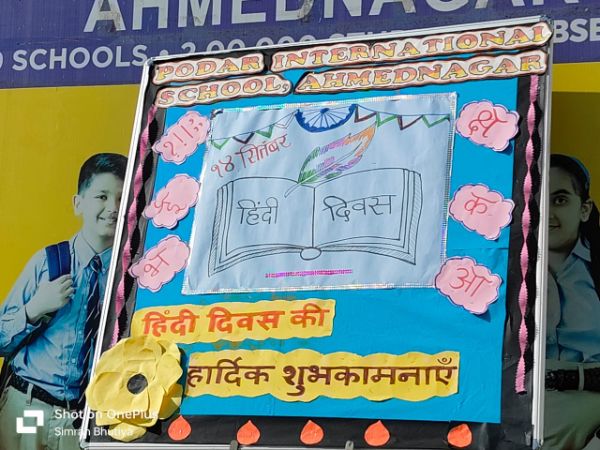 AHMEDNAGAR
SCHOOLS •
PODAR INTERNATIONAL
SCHOOL, AHMEDNAGAR
१४ सितंबर
हिंदी दिवस
भ
आ
हिंदी दिवस की
हार्दिक शुभकामनाएँ
Shot on OnePlus
Simran Bhutiya